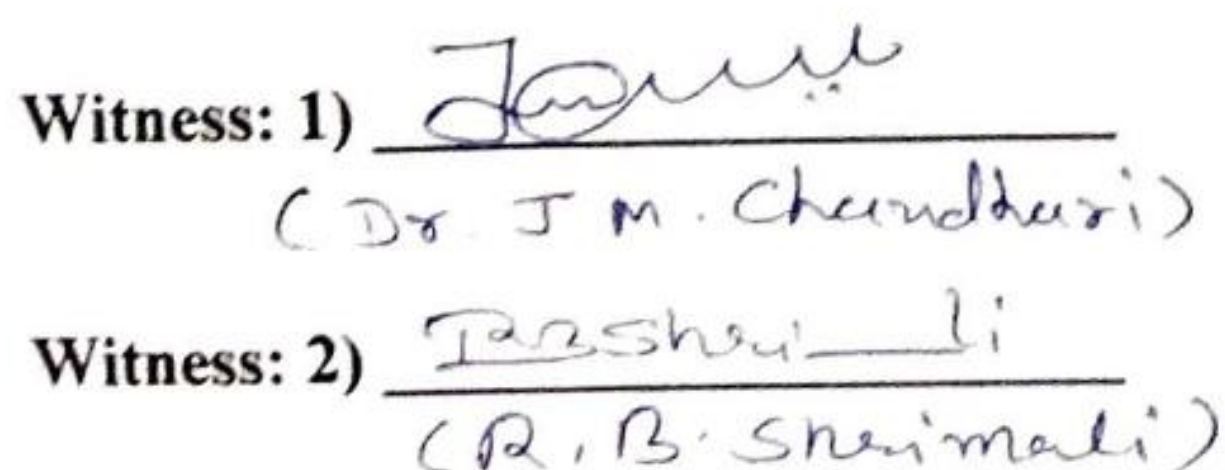 Witness: 1)
(Dr. J M. Chaudhari)
Witness: 2) RBShri li
(R. B. Shrimali)